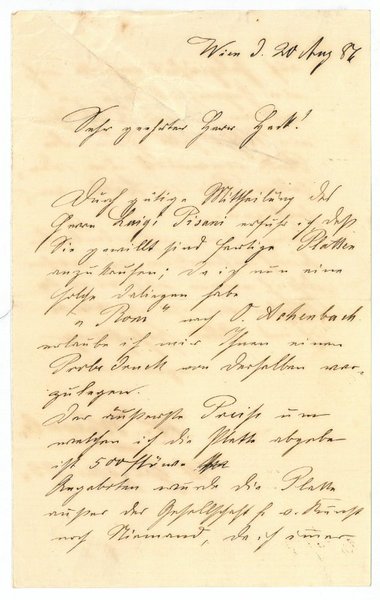 Wien d. 20 Aug 87
Sehr geehrter Herr Heck!
Durch gütige Mittheilung des
Herrn Luigi Pisani erfuhr ich daß
Sie gewillt sind fertige Platten
anzukaufen; da ich nun eine
solche daliegen habe
"Rom" nach O. Achenbach.
erlaube ich mir Ihnen einen
Probedruck von derselben vor-
zulegen.
Der äußerste Preis um
welchen ich die Platte abgebe
ist 500 fl öw.
Angeboten wurde die Platte
außer der Gesellschaft f. v. Kunst
noch Niemand, da ich immer